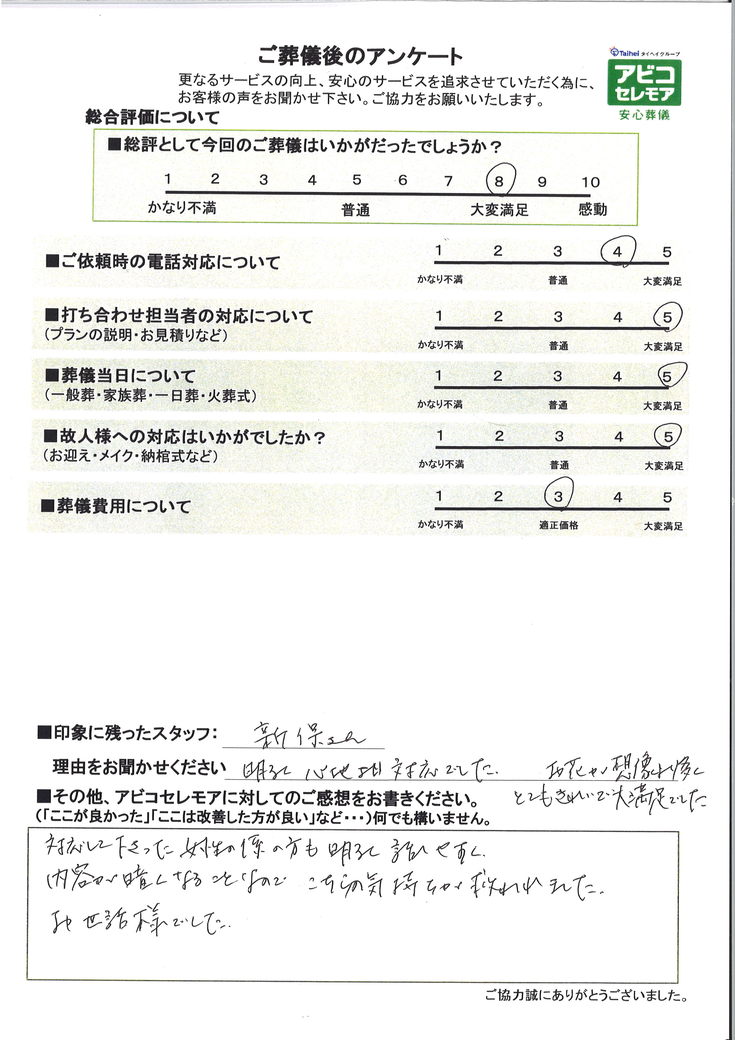 ご葬儀後のアンケート
Taihei タイヘイグループ
アビコ
セレモア
安心葬儀
更なるサービスの向上、安心のサービスを追求させていただく為に、
お客様の声をお聞かせ下さい。ご協力をお願いいたします。
総合評価について
■総評として今回のご葬儀はいかがだったでしょうか?
1 2 3 4 5 6 7 8 9 10
かなり不満 普通 大変満足 感動
■ご依頼時の電話対応について
1 2 3 4 5
かなり不満 普通 大変満足
■打ち合わせ担当者の対応について
(プランの説明・お見積りなど)
1 2 3 4 5
かなり不満 普通 大変満足
■葬儀当日について
(一般葬・家族葬・一日葬・火葬式)
1 2 3 4 5
かなり不満 普通 大変満足
■故人様への対応はいかがでしたか?
(お迎え・メイク・納棺式など)
1 2 3 4 5
かなり不満 普通 大変満足
■葬儀費用について
1 2 3 4 5
かなり不満 適正価格 大変満足
■印象に残ったスタッフ: 新保さん
理由をお聞かせください 明るく心地よい対応でした。 お花が想像より多く
とてもきれいで大満足でした
■その他、アビコセレモアに対してのご感想をお書きください。
(「ここが良かった」「ここは改善した方が良い」など・・・)何でも構いません。
対応して下さった女性の係の方も明るく話しやすく、
内容が暗くなることなので こちらの気持ちが救われました。
お世話様でした。
ご協力誠にありがとうございました。